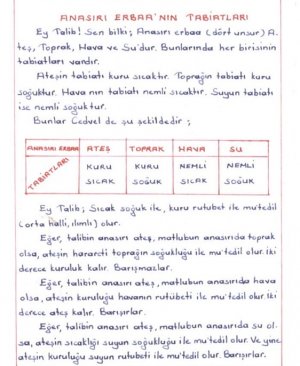 ANASIRI ERBAA'NIN TABIATLARI
Ey Talib! Sen bilki; Anasırı erbaa (dört unsur) A-
teş, Toprak, Hava ve Su'dur. Bunlarında her birisinin
tabiatları vardır.
Ateşin tabiatı kuru sıcaktır. Toprağın tabiatı kuru
soğuktur. Hava nın tabiatı nemli sıcaktır. Suyun tabiatı
ise nemli soğuktur.
Bunlar Cedvel de şu şekildedir;
ANASIRI ERBAA ATEŞ TOPRAK HAVA SU
TABIATLARI KURU KURU NEMLİ NEMLİ
SICAK SOĞUK SICAK SOĞUK
Ey Talib; Sıcak soğuk ile, kuru rutubet ile mu'tedil
(orta halli, ılımlı) olur.
Eğer, talibin anasırı ateş, matlubun anasırıda toprak
olsa, ateşin harareti toprağın soğukluğu ile mu'tedil olur. İki
derece kuruluk kalır. Barışmazlar.
Eğer, talibin anasırı ateş, matlubun anasırıda hava
olsa, ateşin kuruluğu havanın rutübeti ile mu'tedil olur. İki
derece ateş kalır. Barışırlar.
Eğer, talibin anasırı ateş, matlubun anasırıda su ol-
sa, ateşin sıcaklığı suyun soğukluğu ile mu'tedil olur. Ve yine
ateşin kuruluğu suyun rutubeti ile mu'tedil olur. Barışırlar.